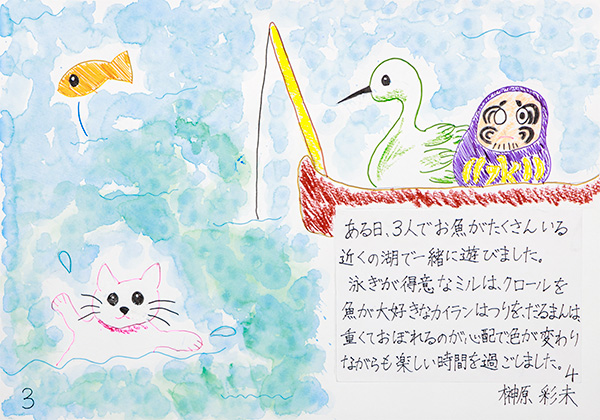 ある日、3人でお魚がたくさんいる
近くの湖で一緒に遊びました。
泳ぎが得意なミルは、クロールを
魚が大好きなカイランはつりを、だるまんは、
重くておぼれるのが心配で色が変わり
ながらも楽しい時間を過ごしました。
4
榊原 彩未
3